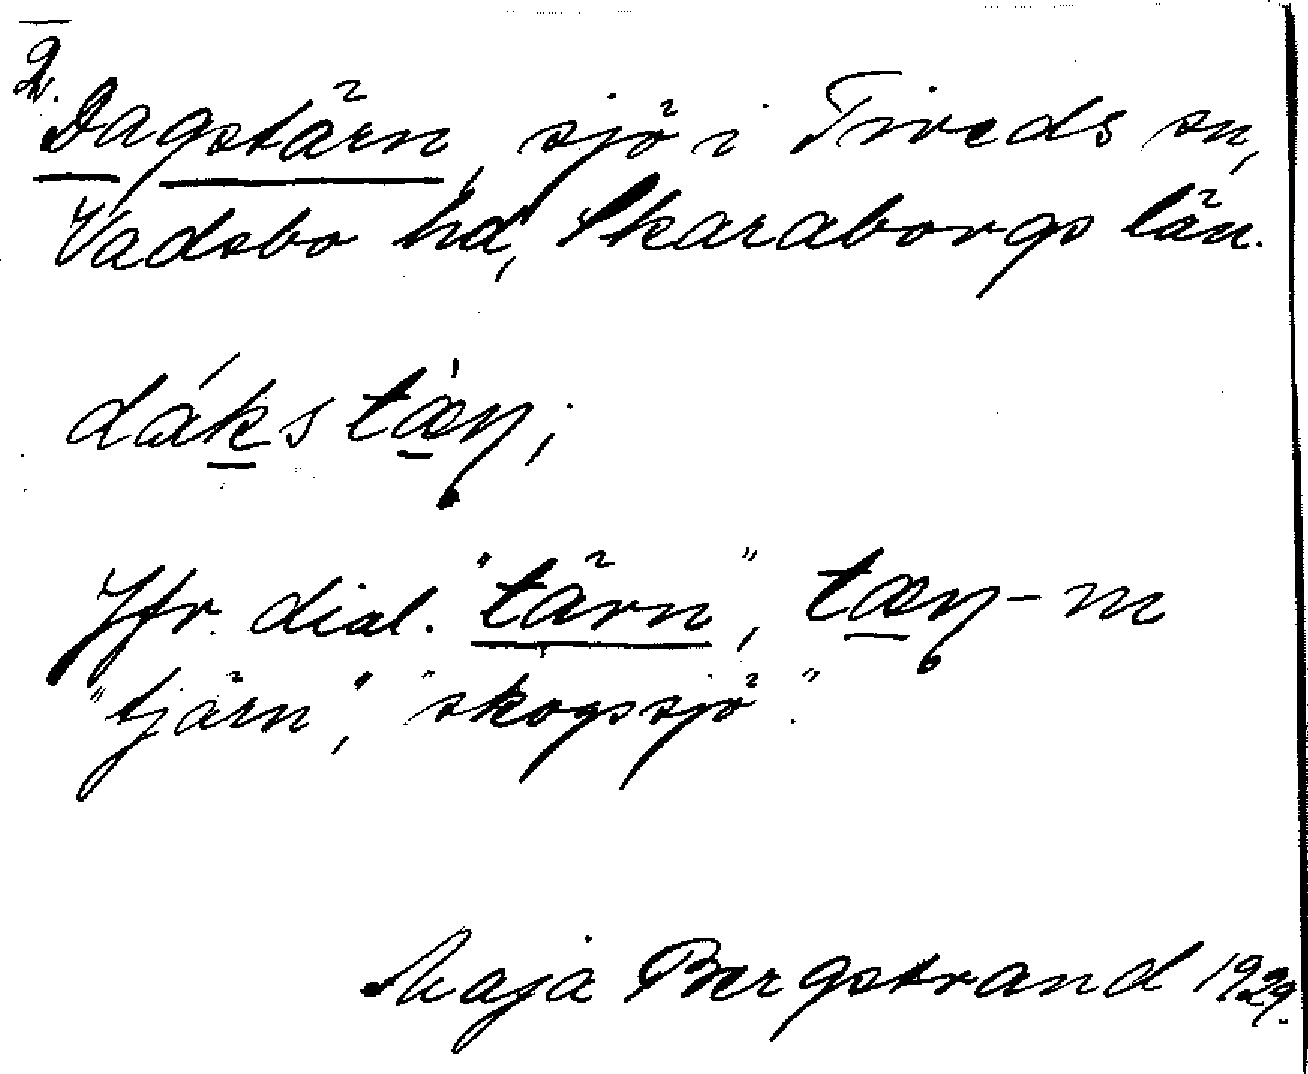 2.
Dagstärn, sjö i Tiveds sn,
Vadsbo hd, Skaraborgs län.
dákstæɳ;
Jfr. dial. "tärn", tæɳ-m
"tjärn", "skogssjö".
Maja Bergstrand 1929.